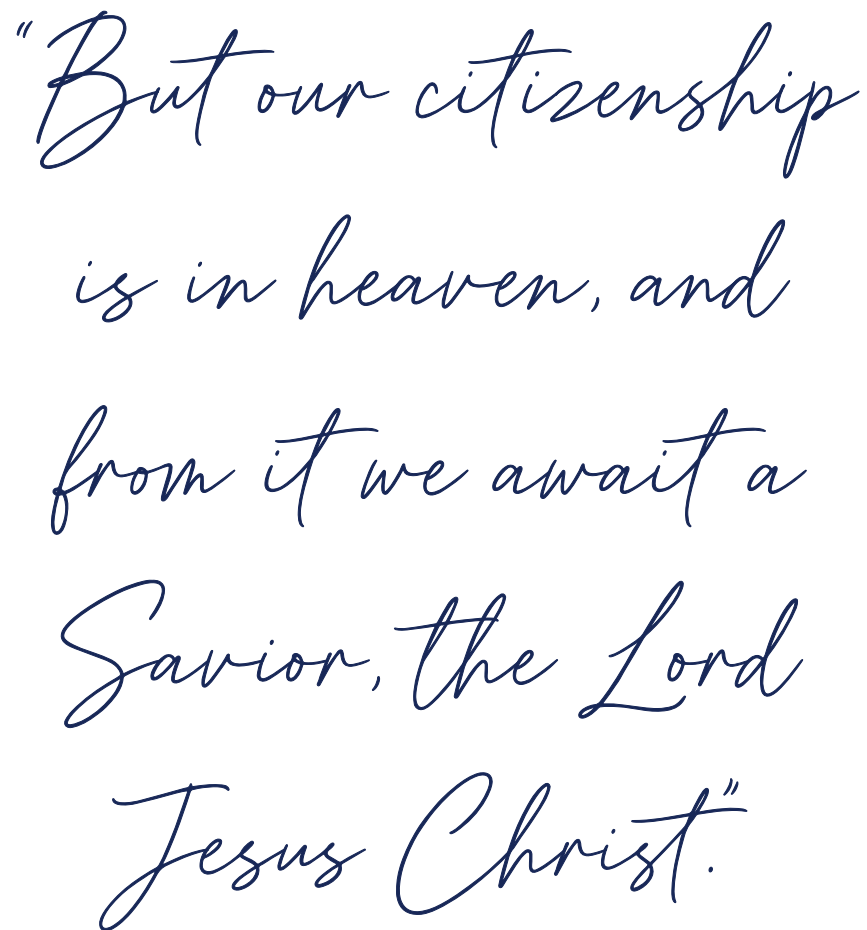 “But our citizenship
is in heaven, and
from it we await a
Savior, the Lord
Jesus Christ.”